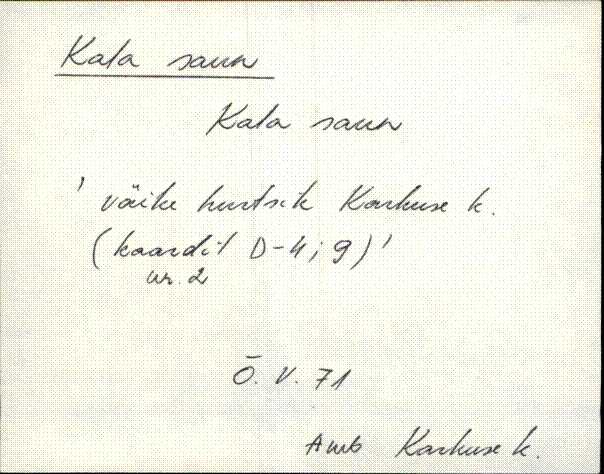 Kala saun
Kala saun
' väike hurtsik Karkuse k.
(kaardil D-4; 9)'
nr. 2
Õ. V. 71
Amb Karkuse k.